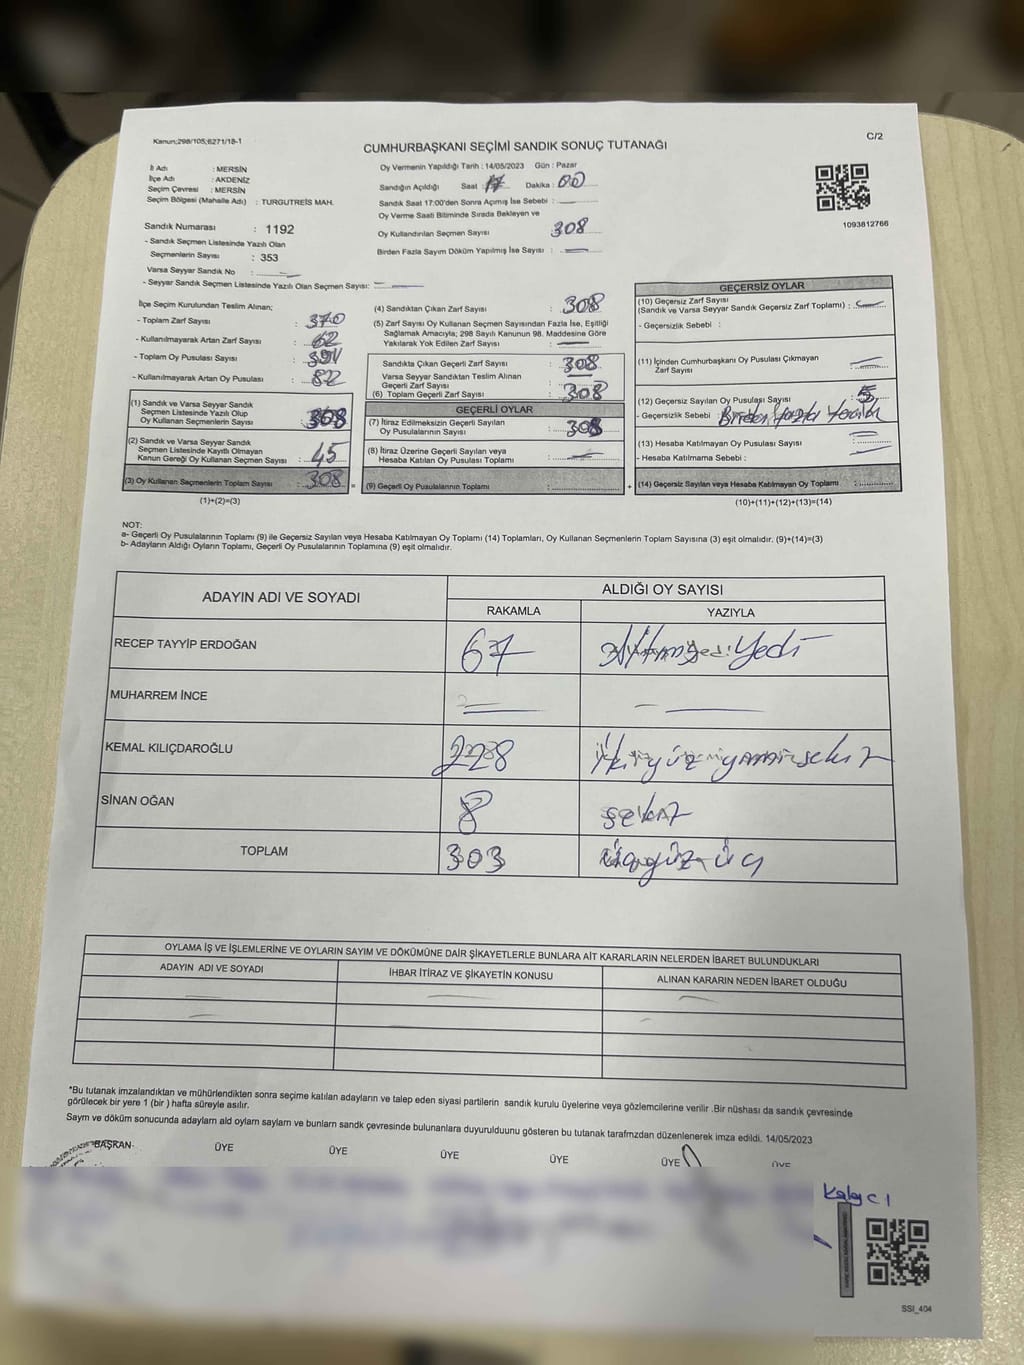 Kanun;298/105;6271/18-1
C/2
CUMHURBAŞKANI SEÇİMİ SANDIK SONUÇ TUTANAĞI
İl Adı : MERSİN
İlçe Adı : AKDENİZ
Seçim Çevresi : MERSİN
Seçim Bölgesi (Mahalle Adı) : TURGUTREİS MAH.
Sandık Numarası : 1192
- Sandık Seçmen Listesinde Yazılı Olan
Seçmenlerin Sayısı : 353
Varsa Seyyar Sandık No :
- Seyyar Sandık Seçmen Listesinde Yazılı Olan Seçmen Sayısı:
Oy Vermenin Yapıldığı Tarih : 14/05/2023 Gün : Pazar
Sandığın Açıldığı Saat : 17 Dakika : 00
Sandık Saat 17:00'den Sonra Açımış İse Sebebi :
Oy Verme Saati Bitiminde Sırada Bekleyen ve
Oy Kullandırılan Seçmen Sayısı 308
Birden Fazla Sayım Döküm Yapılmış İse Sayısı :
1093812766
İlçe Seçim Kurulundan Teslim Alınan;
- Toplam Zarf Sayısı : 370
- Kullanılmayarak Artan Zarf Sayısı : 62
- Toplam Oy Pusulası Sayısı :
- Kullanılmayarak Artan Oy Pusulası : 82
(1) Sandık ve Varsa Seyyar Sandık
Seçmen Listesinde Yazılı Olup
Oy Kullanan Seçmenlerin Sayısı : 308
(2) Sandık ve Varsa Seyyar Sandık
Seçmen Listesinde Kayıtlı Olmayan
Kanun Gereği Oy Kullanan Seçmen Sayısı : 45
(3) Oy Kullanan Seçmenlerin Toplam Sayısı : 308
(1)+(2)=(3)
(4) Sandıktan Çıkan Zarf Sayısı : 308
(5) Zarf Sayısı Oy Kullanan Seçmen Sayısından Fazla İse, Eşitliği
Sağlamak Amacıyla; 298 Sayılı Kanunun 98. Maddesine Göre
Yakılarak Yok Edilen Zarf Sayısı :
Sandıkta Çıkan Geçerli Zarf Sayısı : 308
Varsa Seyyar Sandıktan Teslim Alınan
Geçerli Zarf Sayısı :
(6) Toplam Geçerli Zarf Sayısı : 308
GEÇERLİ OYLAR
(7) İtiraz Edilmeksizin Geçerli Sayılan
Oy Pusulalarının Sayısı : 308
(8) İtiraz Üzerine Geçerli Sayılan veya
Hesaba Katılan Oy Pusulası Toplamı :
= (9) Geçerli Oy Pusulalarının Toplamı :
GEÇERSİZ OYLAR
(10) Geçersiz Zarf Sayısı
(Sandık ve Varsa Seyyar Sandık Geçersiz Zarf Toplamı) :
- Geçersizlik Sebebi :
(11) İçinden Cumhurbaşkanı Oy Pusulası Çıkmayan
Zarf Sayısı :
(12) Geçersiz Sayılan Oy Pusulası Sayısı : 5
- Geçersizlik Sebebi : Birden fazla
(13) Hesaba Katılmayan Oy Pusulası Sayısı :
- Hesaba Katılmama Sebebi :
+ (14) Geçersiz Sayılan veya Hesaba Katılmayan Oy Toplamı :
(10)+(11)+(12)+(13)=(14)
NOT:
a- Geçerli Oy Pusulalarının Toplamı (9) ile Geçersiz Sayılan veya Hesaba Katılmayan Oy Toplamı (14) Toplamları, Oy Kullanan Seçmenlerin Toplam Sayısına (3) eşit olmalıdır. (9)+(14)=(3)
b- Adayların Aldığı Oyların Toplamı, Geçerli Oy Pusulalarının Toplamına (9) eşit olmalıdır.
ADAYIN ADI VE SOYADI
ALDIĞI OY SAYISI
RAKAMLA YAZIYLA
RECEP TAYYİP ERDOĞAN 67 Altmış Yedi
MUHARREM İNCE
KEMAL KILIÇDAROĞLU 228 ikiyüzyirmisekiz
SİNAN OĞAN 8 sekiz
TOPLAM 303 üçyüz üç
OYLAMA İŞ VE İŞLEMLERİNE VE OYLARIN SAYIM VE DÖKÜMÜNE DAİR ŞİKAYETLERLE BUNLARA AİT KARARLARIN NELERDEN İBARET BULUNDUKLARI
ADAYIN ADI VE SOYADI İHBAR İTİRAZ VE ŞİKAYETİN KONUSU ALINAN KARARIN NEDEN İBARET OLDUĞU
*Bu tutanak imzalandıktan ve mühürlendikten sonra seçime katılan adayların ve talep eden siyasi partilerin sandık kurulu üyelerine veya gözlemcilerine verilir .Bir nüshası da sandık çevresinde
görülecek bir yere 1 (bir ) hafta süreyle asılır.
Sayım ve döküm sonucunda adaylarn ald oylarn saylarn ve bunlarn sandk çevresinde bulunanlara duyurulduunu gösteren bu tutanak tarafmzdan düzenlenerek imza edildi. 14/05/2023
BAŞKAN ÜYE ÜYE ÜYE ÜYE ÜYE ÜYE
Kalaycı
SSI_404